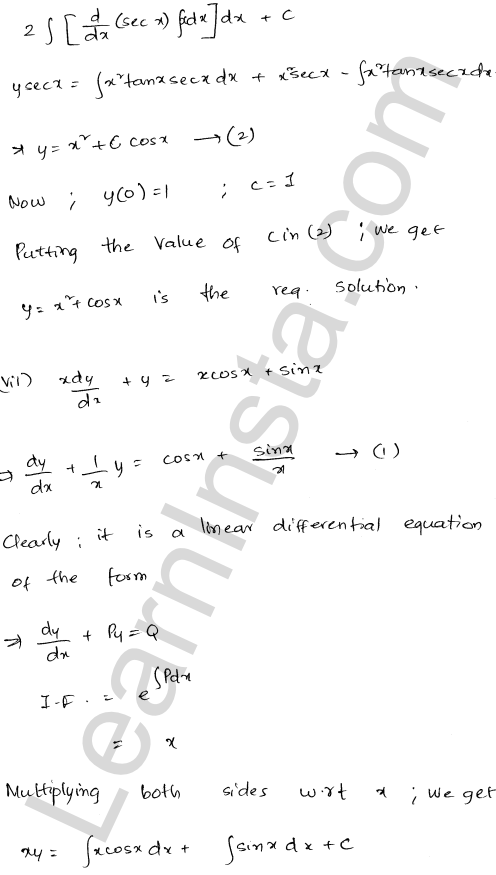 2 ∫ [ d/dx (sec x) ∫xdx ] dx + C
y sec x = ∫x² tanx secx dx + x² secx - ∫x² tanx secx dx
⇒ y = x² + C cosx → (2)
Now ; y(0) = 1 ; c = 1
Putting the value of c in (2) ; we get
y = x² + cosx is the req. solution.
vii) x dy/dx + y = xcosx + sinx
⇒ dy/dx + 1/x y = cosx + sinx/x → (1)
Clearly ; it is a linear differential equation
of the form
⇒ dy/dx + Py = Q
I.F. = e^∫Pdx
= x
Multiplying both sides w.r.t x ; we get
xy = ∫xcosx dx + ∫sinx dx + C
LearnInsta.com